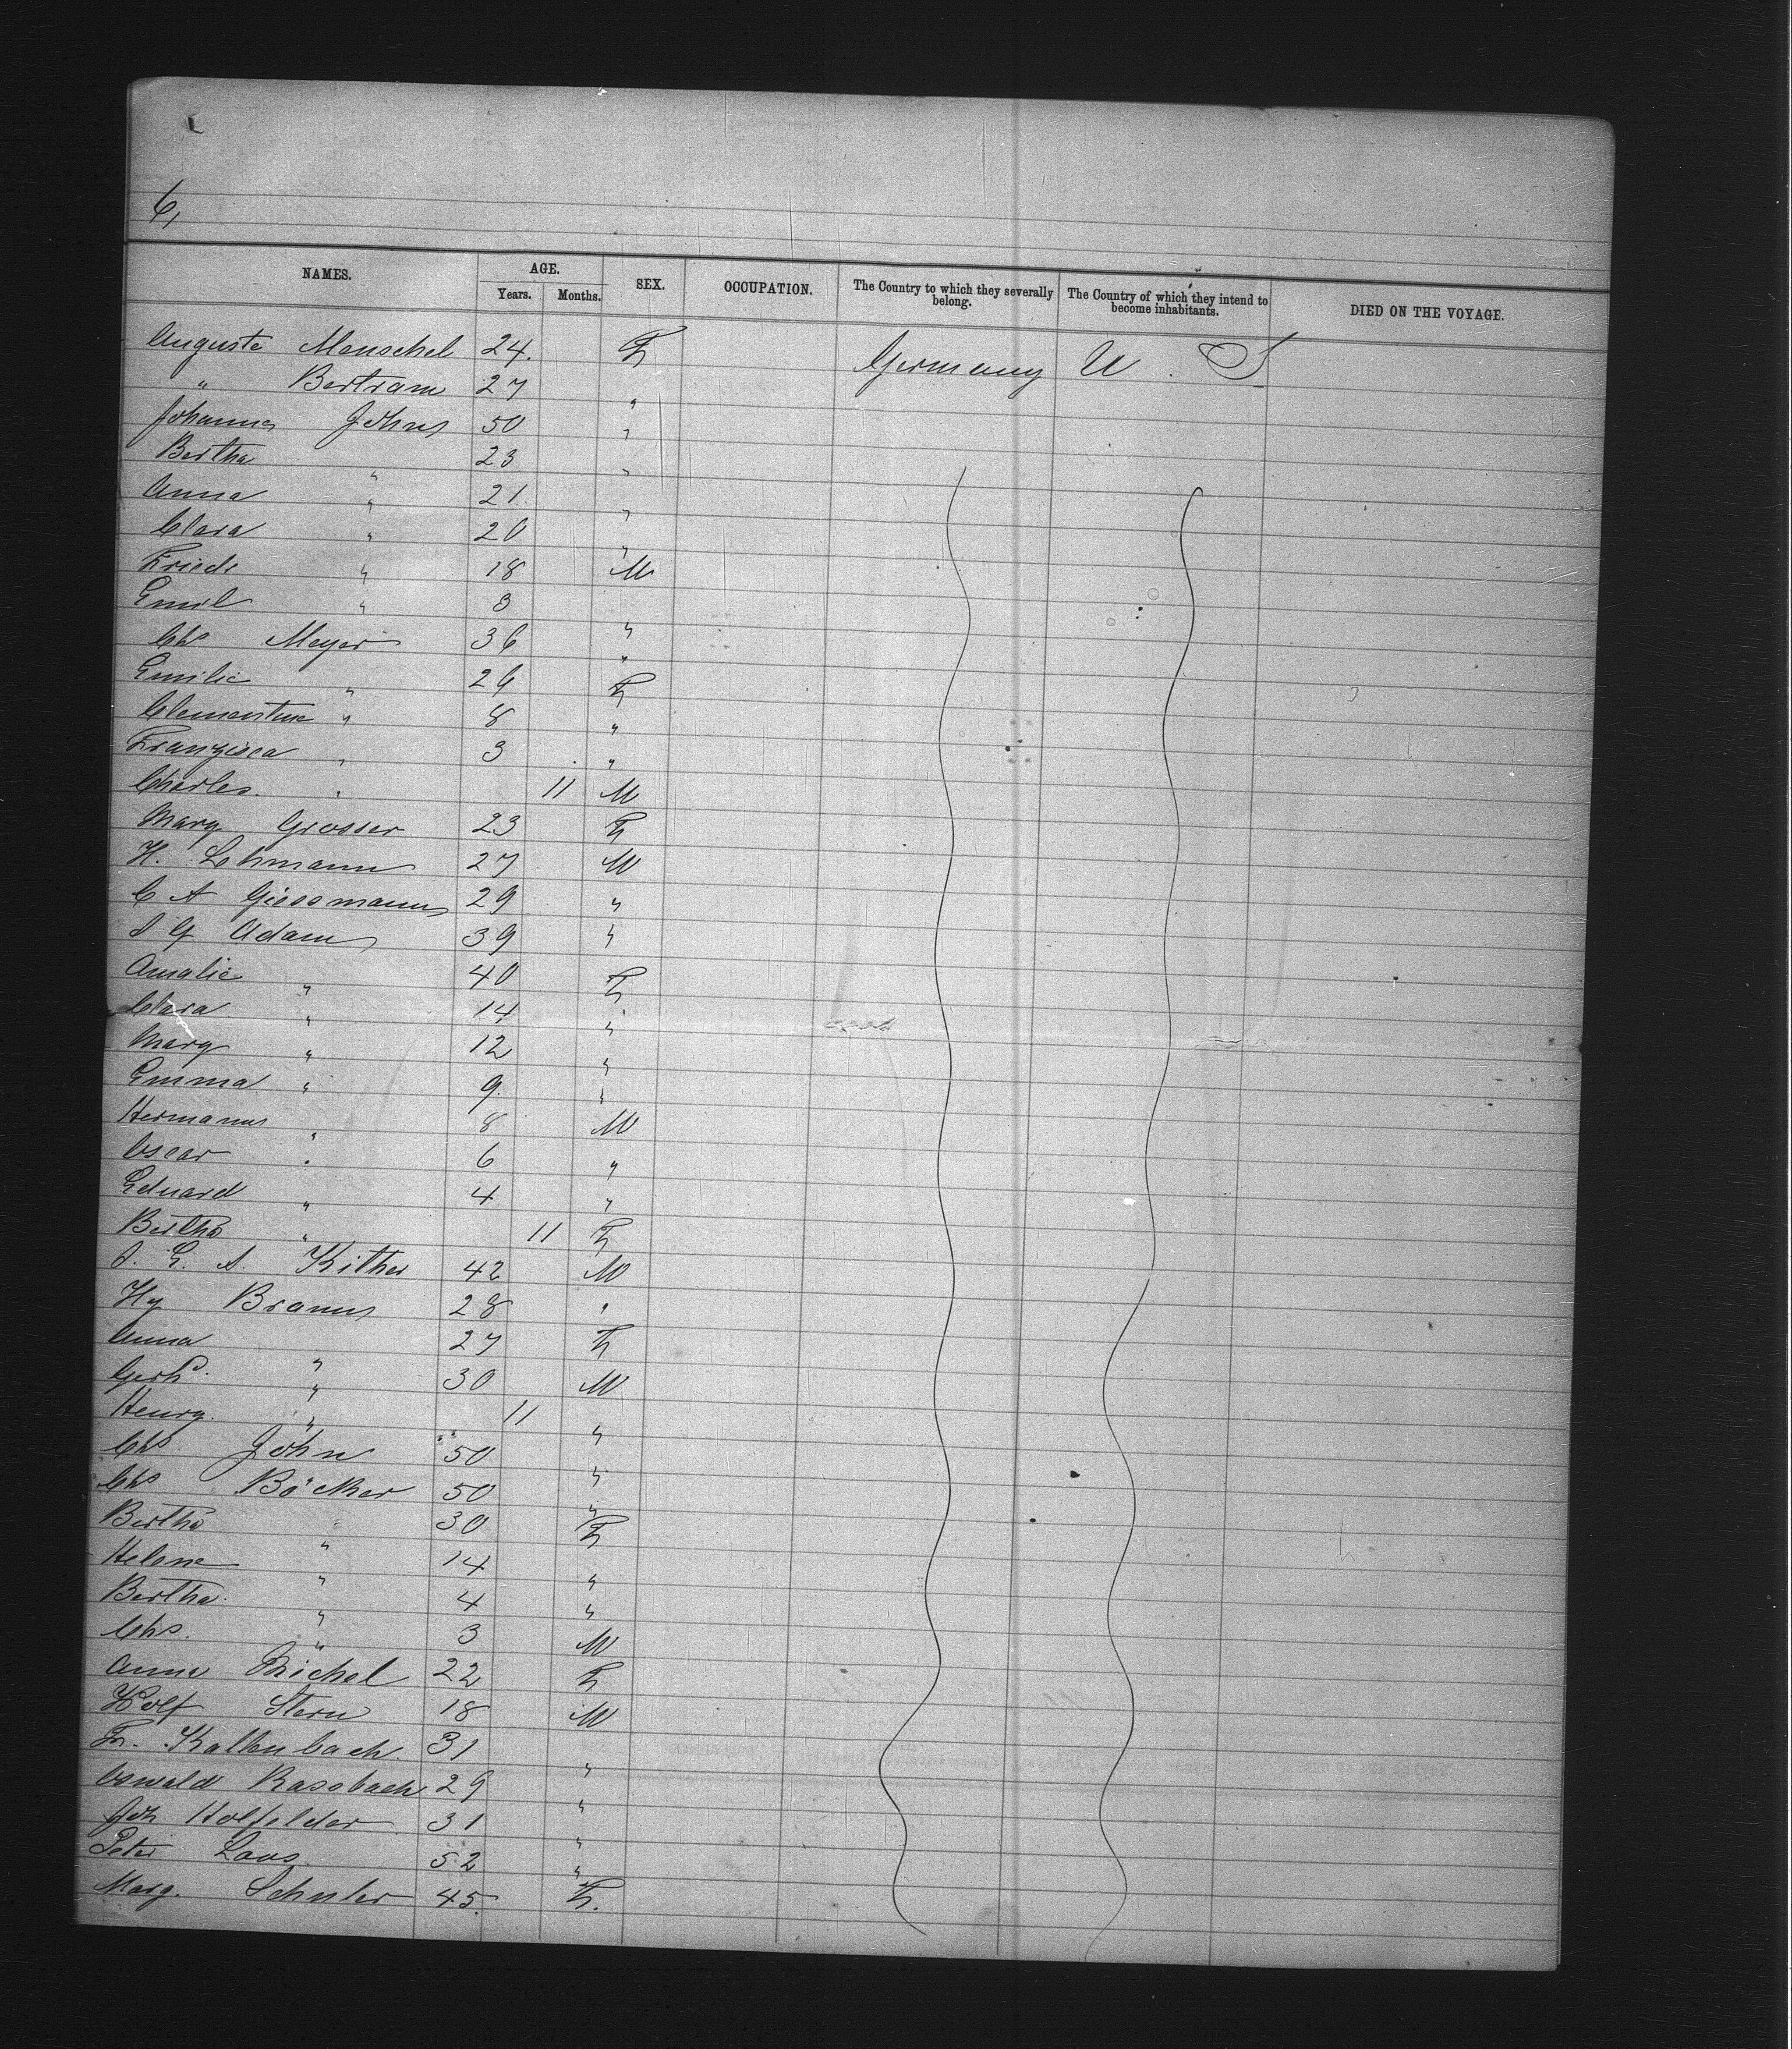 6,
NAMES. AGE. Years. Months. SEX. OCCUPATION. The Country to which they severally belong. The Country of which they intend to become inhabitants. DIED ON THE VOYAGE.
Auguste Menschel 24. F Germany U. S
" Bertram 27 "
Johanna Johns 50 "
Bertha " 23 "
Anna " 21 "
Clara " 20 "
Friede " 18 M
Emil " 3 "
Chs Meyer 36 "
Emilie " 26 F
Clementine " 8 "
Franzisca " 3 "
Charles " 11 M
Mary Grosser 23 F
H. Lehmann 27 M
C A Giessmann 29 "
Adam 39 "
Amalie " 40 F
Clara " 14 "
Mary " 12 "
Emma " 9. "
Hermann " 8 M
Oscar " 6 "
Eduard " 4 "
Bertha " 11 F
Kither 42 M
Hy Brauns 28 "
Anna " 27 F
Gerhd. " 30 M
Henry. " 11 "
Chs John 50 "
Chs Böcker 50 "
Bertha " 30 F
Helene " 14 "
Bertha. " 4 "
Chs. " 3 M
Anna Michel 22 F
Wolf Stern 18 M
Fr. Kaltenbach. 31 "
Oswald Rassbach 29 "
Joh Holfelder 31 "
Peter Laus 52 "
Marg. Schuler 45. F.